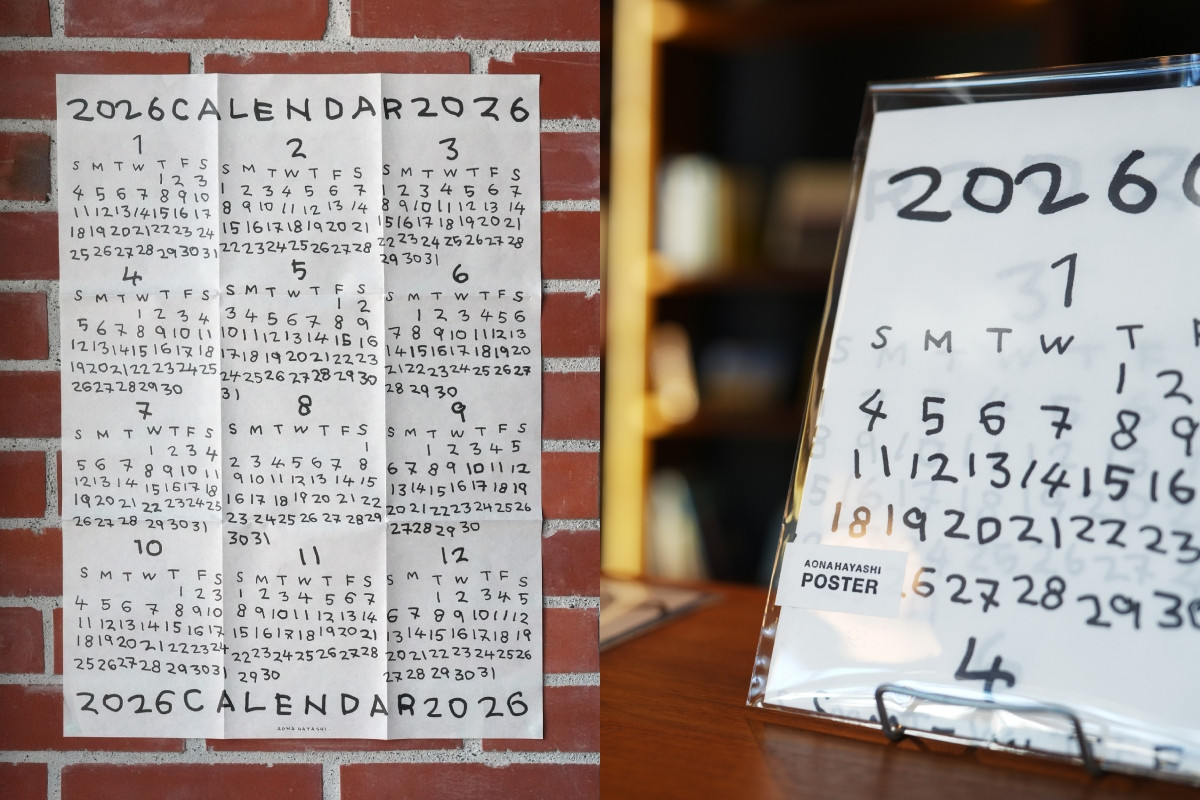 2026 CALENDAR 2026
1
S M T W T F S
1 2 3
4 5 6 7 8 9 10
11 12 13 14 15 16 17
18 19 20 21 22 23 24
25 26 27 28 29 30 31
2
S M T W T F S
1 2 3 4 5 6 7
8 9 10 11 12 13 14
15 16 17 18 19 20 21
22 23 24 25 26 27 28
3
S M T W T F S
1 2 3 4 5 6 7
8 9 10 11 12 13 14
15 16 17 18 19 20 21
22 23 24 25 26 27 28
29 30 31
4
S M T W T F S
1 2 3 4
5 6 7 8 9 10 11
12 13 14 15 16 17 18
19 20 21 22 23 24 25
26 27 28 29 30
5
S M T W T F S
1 2
3 4 5 6 7 8 9
10 11 12 13 14 15 16
17 18 19 20 21 22 23
24 25 26 27 28 29 30
31
6
S M T W T F S
1 2 3 4 5 6
7 8 9 10 11 12 13
14 15 16 17 18 19 20
21 22 23 24 25 26 27
28 29 30
7
S M T W T F S
1 2 3 4
5 6 7 8 9 10 11
12 13 14 15 16 17 18
19 20 21 22 23 24 25
26 27 28 29 30 31
8
S M T W T F S
1
2 3 4 5 6 7 8
9 10 11 12 13 14 15
16 17 18 19 20 21 22
23 24 25 26 27 28 29
30 31
9
S M T W T F S
1 2 3 4 5
6 7 8 9 10 11 12
13 14 15 16 17 18 19
20 21 22 23 24 25 26
27 28 29 30
10
S M T W T F S
1 2 3
4 5 6 7 8 9 10
11 12 13 14 15 16 17
18 19 20 21 22 23 24
25 26 27 28 29 30 31
11
S M T W T F S
1 2 3 4 5 6 7
8 9 10 11 12 13 14
15 16 17 18 19 20 21
22 23 24 25 26 27 28
29 30
12
S M T W T F S
1 2 3 4 5
6 7 8 9 10 11 12
13 14 15 16 17 18 19
20 21 22 23 24 25 26
27 28 29 30 31
2026 CALENDAR 2026
AONA HAYASHI
2026
1
S M T W T
1 2
4 5 6 7 8 9
11 12 13 14 15 16
18 19 20 21 22 23
27 28 29 30
AONAHAYASHI
POSTER
4